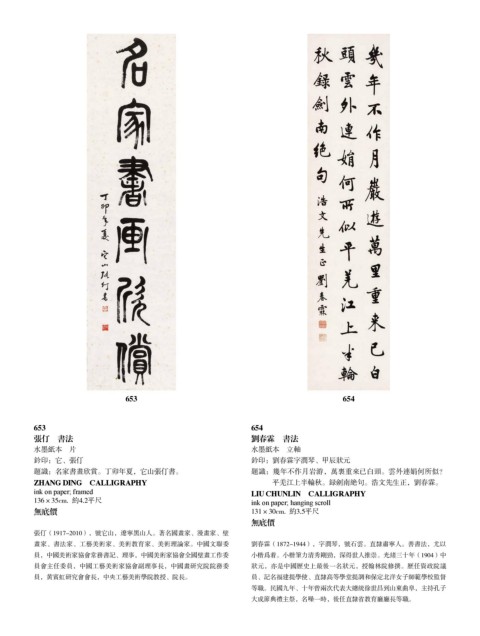 名家書画欣償
丁卯年夏 它山張仃書
幾年不作月巖遊萬里重来已白
頭雲外連娟何所似平羌江上半輪
秋 録劍南绝句 浩文先生正 劉春霖
653
654
653
張仃　書法
水墨紙本　片
鈐印：它、張仃
題識：名家書畫欣賞。丁卯年夏，它山張仃書。
ZHANG DING　CALLIGRAPHY
ink on paper; framed
136 × 35cm.　約4.2平尺
無底價
張仃（1917-2010），號它山，遼寧黑山人。著名國畫家、漫畫家、壁
畫家、書法家、工藝美術家、美術教育家、美術理論家。中國文聯委
員，中國美術家協會常務書記、理事，中國美術家協會全國壁畫工作委
員會主任委員，中國工藝美術家協會副理事長，中國畫研究院院務委
員，黃賓虹研究會會長，中央工藝美術學院教授、院長。
654
劉春霖　書法
水墨紙本　立軸
鈐印：劉春霖字潤琴、甲辰狀元
題識：幾年不作月岩游，萬裏重來已白頭。雲外連娟何所似？
平羌江上半輪秋。録劍南絶句。浩文先生正，劉春霖。
LIU CHUNLIN　CALLIGRAPHY
ink on paper; hanging scroll
131 × 30cm.　約3.5平尺
無底價
劉春霖（1872-1944），字潤琴，號石雲，直隸肅寧人。善書法，尤以
小楷爲着。小楷筆力清秀剛勁，深得世人推崇。光緒三十年（1904）中
狀元，亦是中國歷史上最後一名狀元，授翰林院修撰。歷任資政院議
員、記名福建提學使、直隸高等學堂提調和保定北洋女子師範學校監督
等職。民國九年、十年曾兩次代表大總統徐世昌到山東曲阜，主持孔子
大成節典禮主祭，名噪一時，後任直隸省教育廳廳長等職。